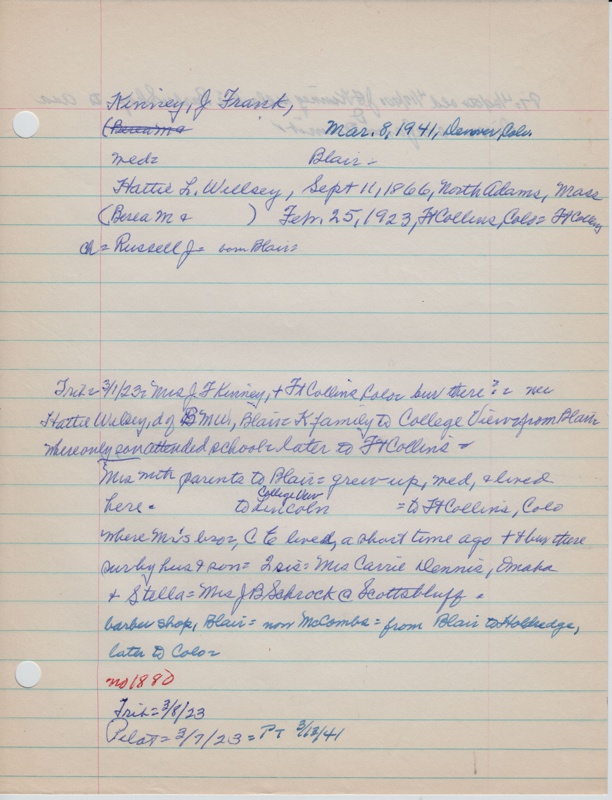 Kinney, J Frank,
(Berea M & Mar. 8, 1941, Denver, Colo.
med= Blair=
Hattie L. Willsey, Sept 11, 1866, North Adams, Mass
(Berea M & ) Feb. 25, 1923, Ft Collins, Colo= Ft Collins
ch= Russell J= born Blair=
Trib= 3/1/23= Mrs J F Kinney, + Ft Collins Colo= bur there?= nee
Hattie Welsey, d of B M W, Blair= K family to College View= from Blair
where only son attended school= later to Ft Collins=
Mrs with parents to Blair= grew up, med, & lived
here= to Lincoln College View = to Ft Collins, Colo
where Mr's bro=, C E lived, a short time ago + & bur there
sur by hus & son= 2 sis= Mrs Carrie Dennis, Omaha
& Stella= Mrs J B Schrock @ Scottsbluff=
barber shop, Blair= now McCombs= from Blair to Holdredge,
later to Colo=
no 1880
Trib= 3/8/23
Pilot= 3/7/23= PT 3/13/41